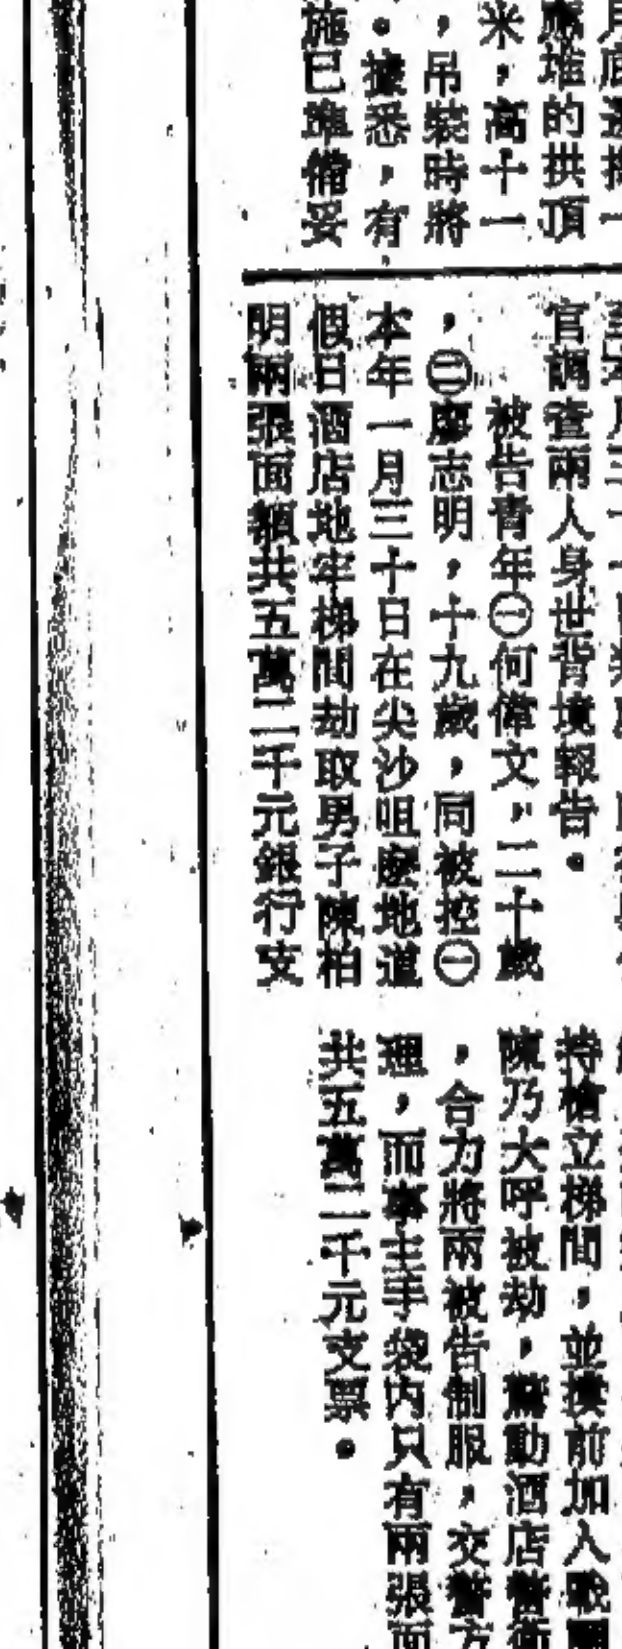 應堆的拱頂
米，高十一
，吊裝時將
。據悉，有
施已準備妥
官調查兩人身世背境報告。
被告青年㊀何偉文，二十歲
，㊁廖志明，十九歲，同被控㊀
本年一月三十日在尖沙咀麼地道
假日酒店地牢梯間劫取男子陳柏
明兩張面額共五萬二千元銀行支
持槍立梯間，並撲前加入戰團
陳乃大呼被劫，驚動酒店警衛
，合力將兩被告制服，交警方
理，而事主手袋內只有兩張面
共五萬二千元支票。